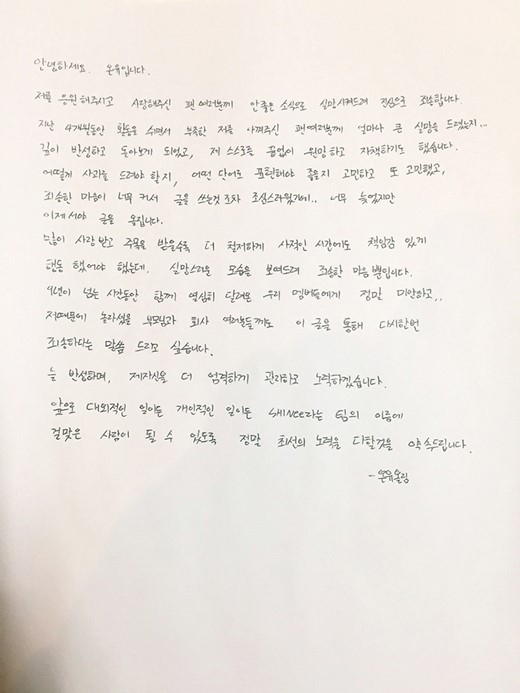 안녕하세요. 온유입니다.
저를 응원해주시고 사랑해주신 팬여러분께 안좋은 소식으로 실망시켜드려 진심으로 죄송합니다
지난 4개월동안 활동을 쉬면서 부족한 저를 아껴주신 팬여러분께 얼마나 큰 실망을 드렸는지...
깊이 반성하고 돌아보게 되었고, 제 스스로를 끊임없이 원망하고 자책하기도 했습니다.
어떻게 사과를 드려야 할지, 어떤 단어로 표현해야 좋을지 고민하고 또 고민했고,
죄송한 마음이 너무 커서 글을 쓰는것조차 조심스러웠기에.. 너무 늦었지만
이제서야 글을 올립니다.
많이 사랑받고 주목을 받을수록 더 철저하게 사적인 시간에도 책임감 있게
행동 했어야 했는데. 실망스러운 모습을 보여드려 죄송한 마음뿐입니다.
9년이 넘는 시간동안 함께 열심히 달려온 우리 멤버들에게 정말 미안하고..
저때문에 놀라셨을 부모님과 회사 여러분들께도 이 글을 통해 다시한번
죄송하다는 말씀 드리고 싶습니다.
늘 반성하며, 제자신을 더 엄격하게 관리하고 노력하겠습니다.
앞으로 대외적인 일이든 개인적인 일이든 SHINee라는 팀의 이름에
걸맞은 사람이 될 수 있도록 정말 최선의 노력을 다할것을 약속드립니다.
-온유올림